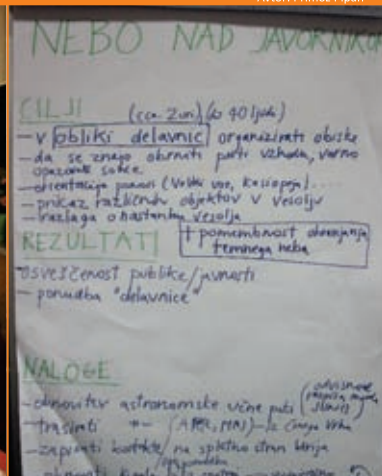 NEBO NAD JAVORNIKOM
CILJI (cca. 2uri) (do 40 ljudi)
- v obliki delavnic organizirati obiske
- da se znajo obrniti proti vzhodu, varno
opazovati sonce
- orientacija ponoči (Veliki voz, Kasiopeja)....
- prikaz različnih objektov v vesolju
- razlaga o nastanku vesolja
REZULTATI + pomembnost ohranjanja
temnega neba
- osveščenost publike/javnosti
- ponudba "delavnice"
NALOGE
- obnovitev astronomske učne poti
- trasirati -"- iz Črnega Vrha
- zapisati kontakte/na spletno stran